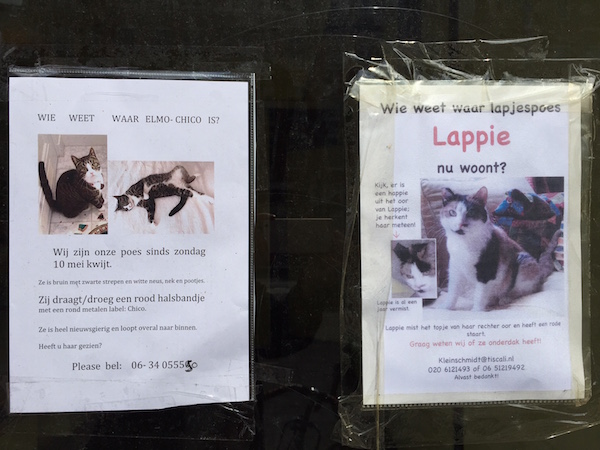 WIE WEET WAAR ELMO-CHICO IS?
Wij zijn onze poes sinds zondag
10 mei kwijt.
Ze is bruin met zwarte strepen en witte neus, nek en pootjes.
Zij draagt/droeg een rood halsbandje
met een rond metalen label: Chico.
Ze is heel nieuwsgierig en loopt overal naar binnen.
Heeft u haar gezien?
Please bel: 06- 34 055550
Wie weet waar lapjespoes
Lappie
nu woont?
Kijk, er is
een happie
uit het oor
van Lappie;
je herkent
haar meteen!
Lappie is al een
jaar vermist.
Lappie mist het topje van haar rechter oor en heeft een rode
staart.
Graag weten wij of ze onderdak heeft!
Kleinschmidt@tiscali.nl
020 6121493 of 06 51219492
Alvast bedankt!